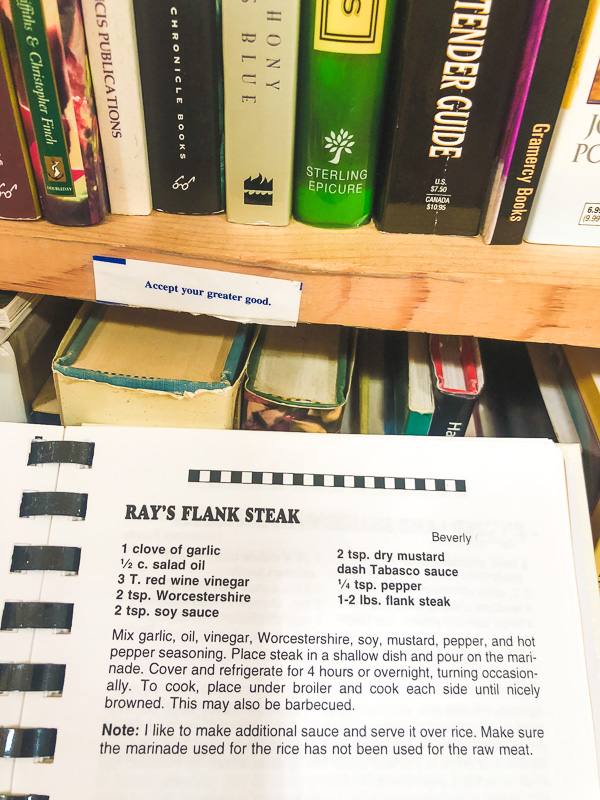 iffiths & Christopher Finch
DOUBLEDAY
CIS PUBLICATIONS
CHRONICLE BOOKS
HONY
S BLUE
S
STERLING
EPICURE
TENDER GUIDE
U.S.
$7.50
CANADA
$10.95
Gramercy Books
JO
PO
6.9
(9.99
Accept your greater good.
Ha
RAY'S FLANK STEAK
Beverly
1 clove of garlic
½ c. salad oil
3 T. red wine vinegar
2 tsp. Worcestershire
2 tsp. soy sauce
2 tsp. dry mustard
dash Tabasco sauce
¼ tsp. pepper
1-2 lbs. flank steak
Mix garlic, oil, vinegar, Worcestershire, soy, mustard, pepper, and hot
pepper seasoning. Place steak in a shallow dish and pour on the mari-
nade. Cover and refrigerate for 4 hours or overnight, turning occasion-
ally. To cook, place under broiler and cook each side until nicely
browned. This may also be barbecued.
Note: I like to make additional sauce and serve it over rice. Make sure
the marinade used for the rice has not been used for the raw meat.